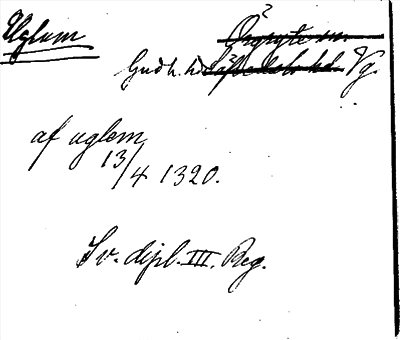 Uglum
Gudh. hd Vg.
af uglem
13/4 1320.
Sv. dipl. III. Reg.